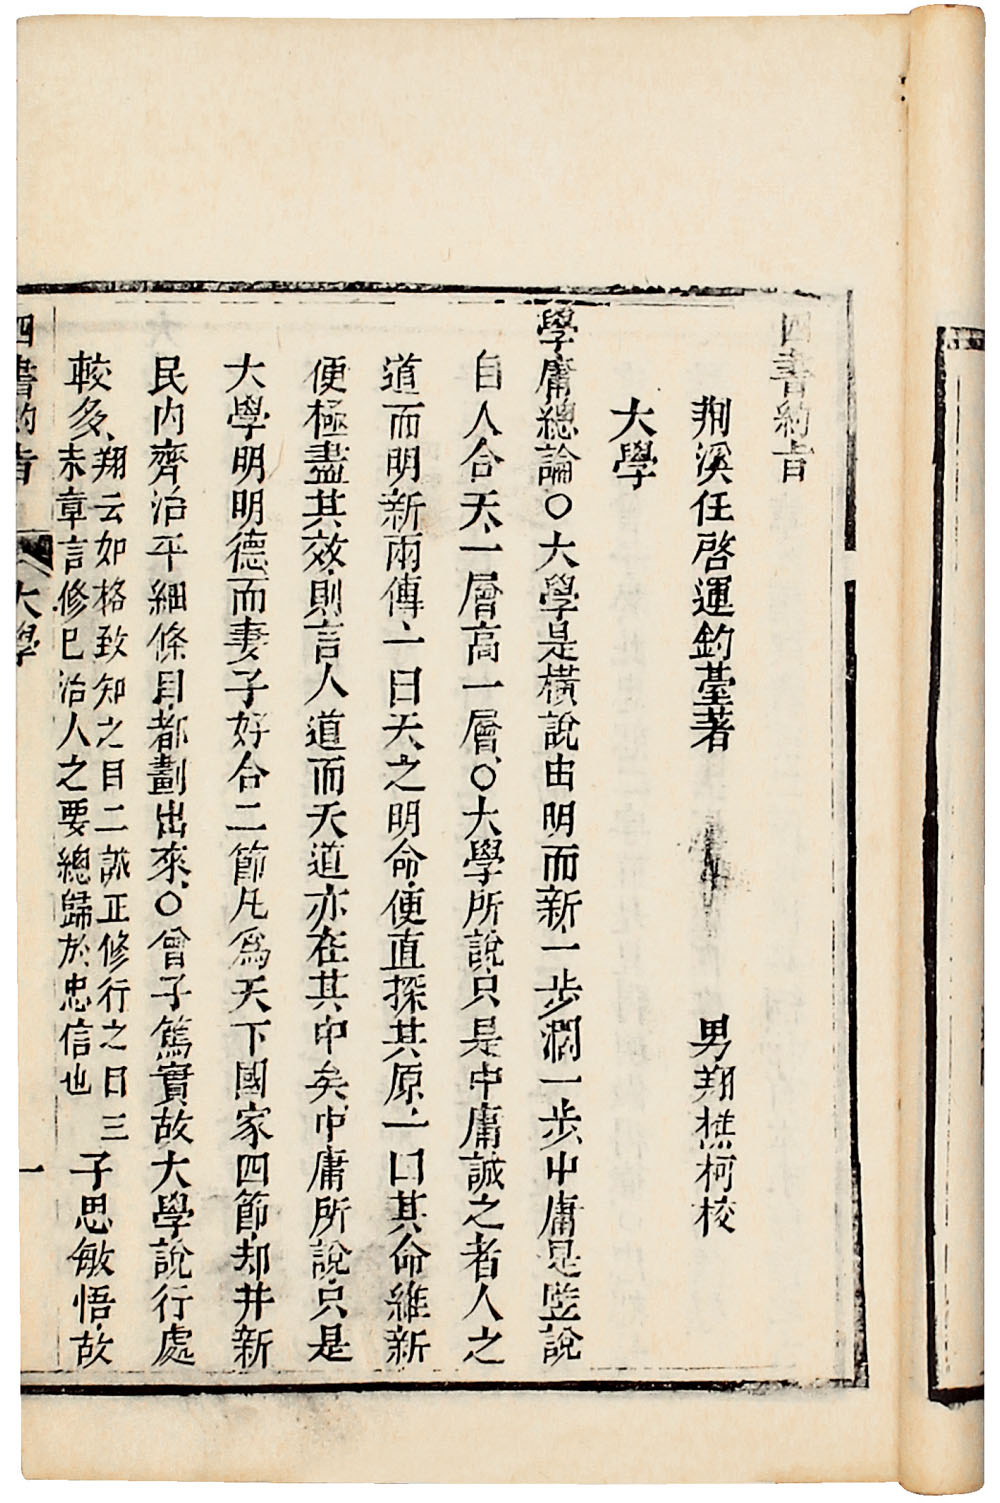 四書約旨
荆溪任啓運釣臺著 男翔樵柯校
大學
學庸總論〇大學是橫說由明而新一步濶一步中庸是豎說
自人合天一層高一層〇大學所說只是中庸誠之者人之
道而明新兩傳一曰天之明命便直探其原一曰其命維新
便極盡其效則言人道而天道亦在其中矣中庸所說只是
大學明明德而妻子好合二節凡爲天下國家四節却并新
民內齊治平細條目都劃出來〇曾子篤實故大學說行處
較多翔云如格致知之目二誠正修行之目三
未章言修已治人之要總歸於忠信也
子思敏悟故
四書約旨 大學 一